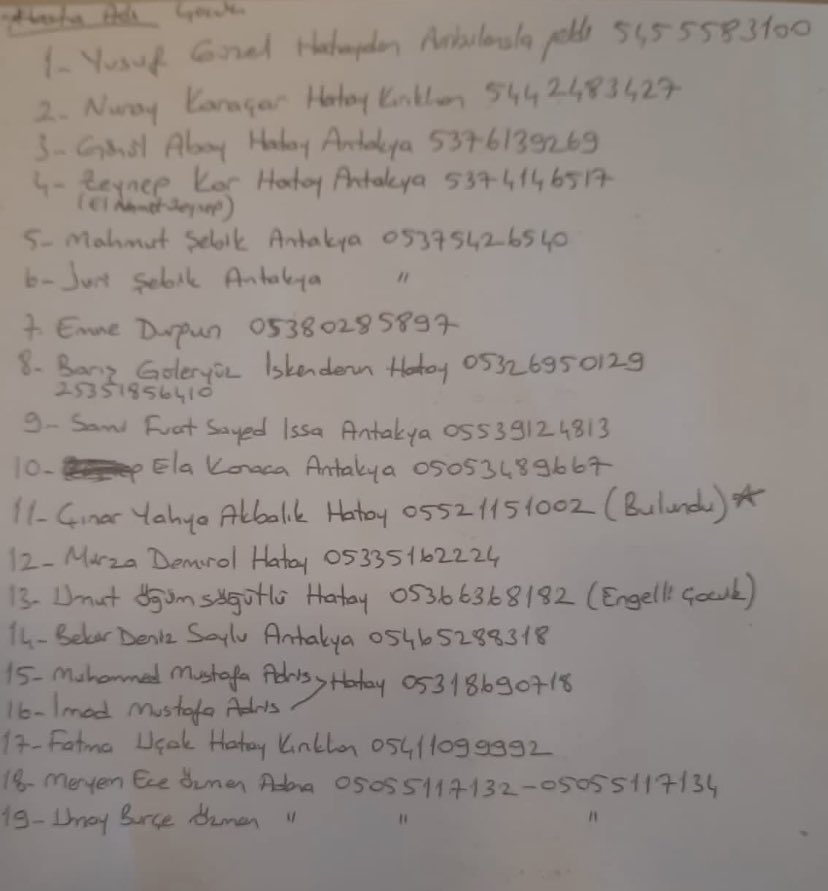 Hasta Adı Çocuk
1- Yusuf Güzel Hataydan Ambulansla geldi 5455583100
2- Nuray Karaçar Hatay Kırıkhan 5442483427
3- Abay Hatay Antakya 5376139269
4- Zeynep Kor Hatay Antakya 5374146517
5- Mahmut Şebik Antakya 05375426540
6- Şebik Antakya "
7- Emine 05380285897
8- Barış Güleryüz İskenderun Hatay 05326950129
25351856410
9- Sami Fuat Sayed Issa Antakya 05539124813
10- Ela Karaca Antakya 05053489667
11- Çınar Yahya Akbalık Hatay 05521151002 (Bulundu) ☆
12- Mirza Demirol Hatay 05335162224
13- Umut Söğütlü Hatay 05366368182 (Engelli Çocuk)
14- Bekir Deniz Soylu Antakya 05465288318
15- Muhammed Mustafa Adris > Hatay 05318690718
16- İmad Mustafa Adris
17- Fatma Uçak Hatay Kırıkhan 05411099992
18- Meryem Ece Özmen Adana 05055117132-05055117134
19- Umay Burçe Özmen " " "